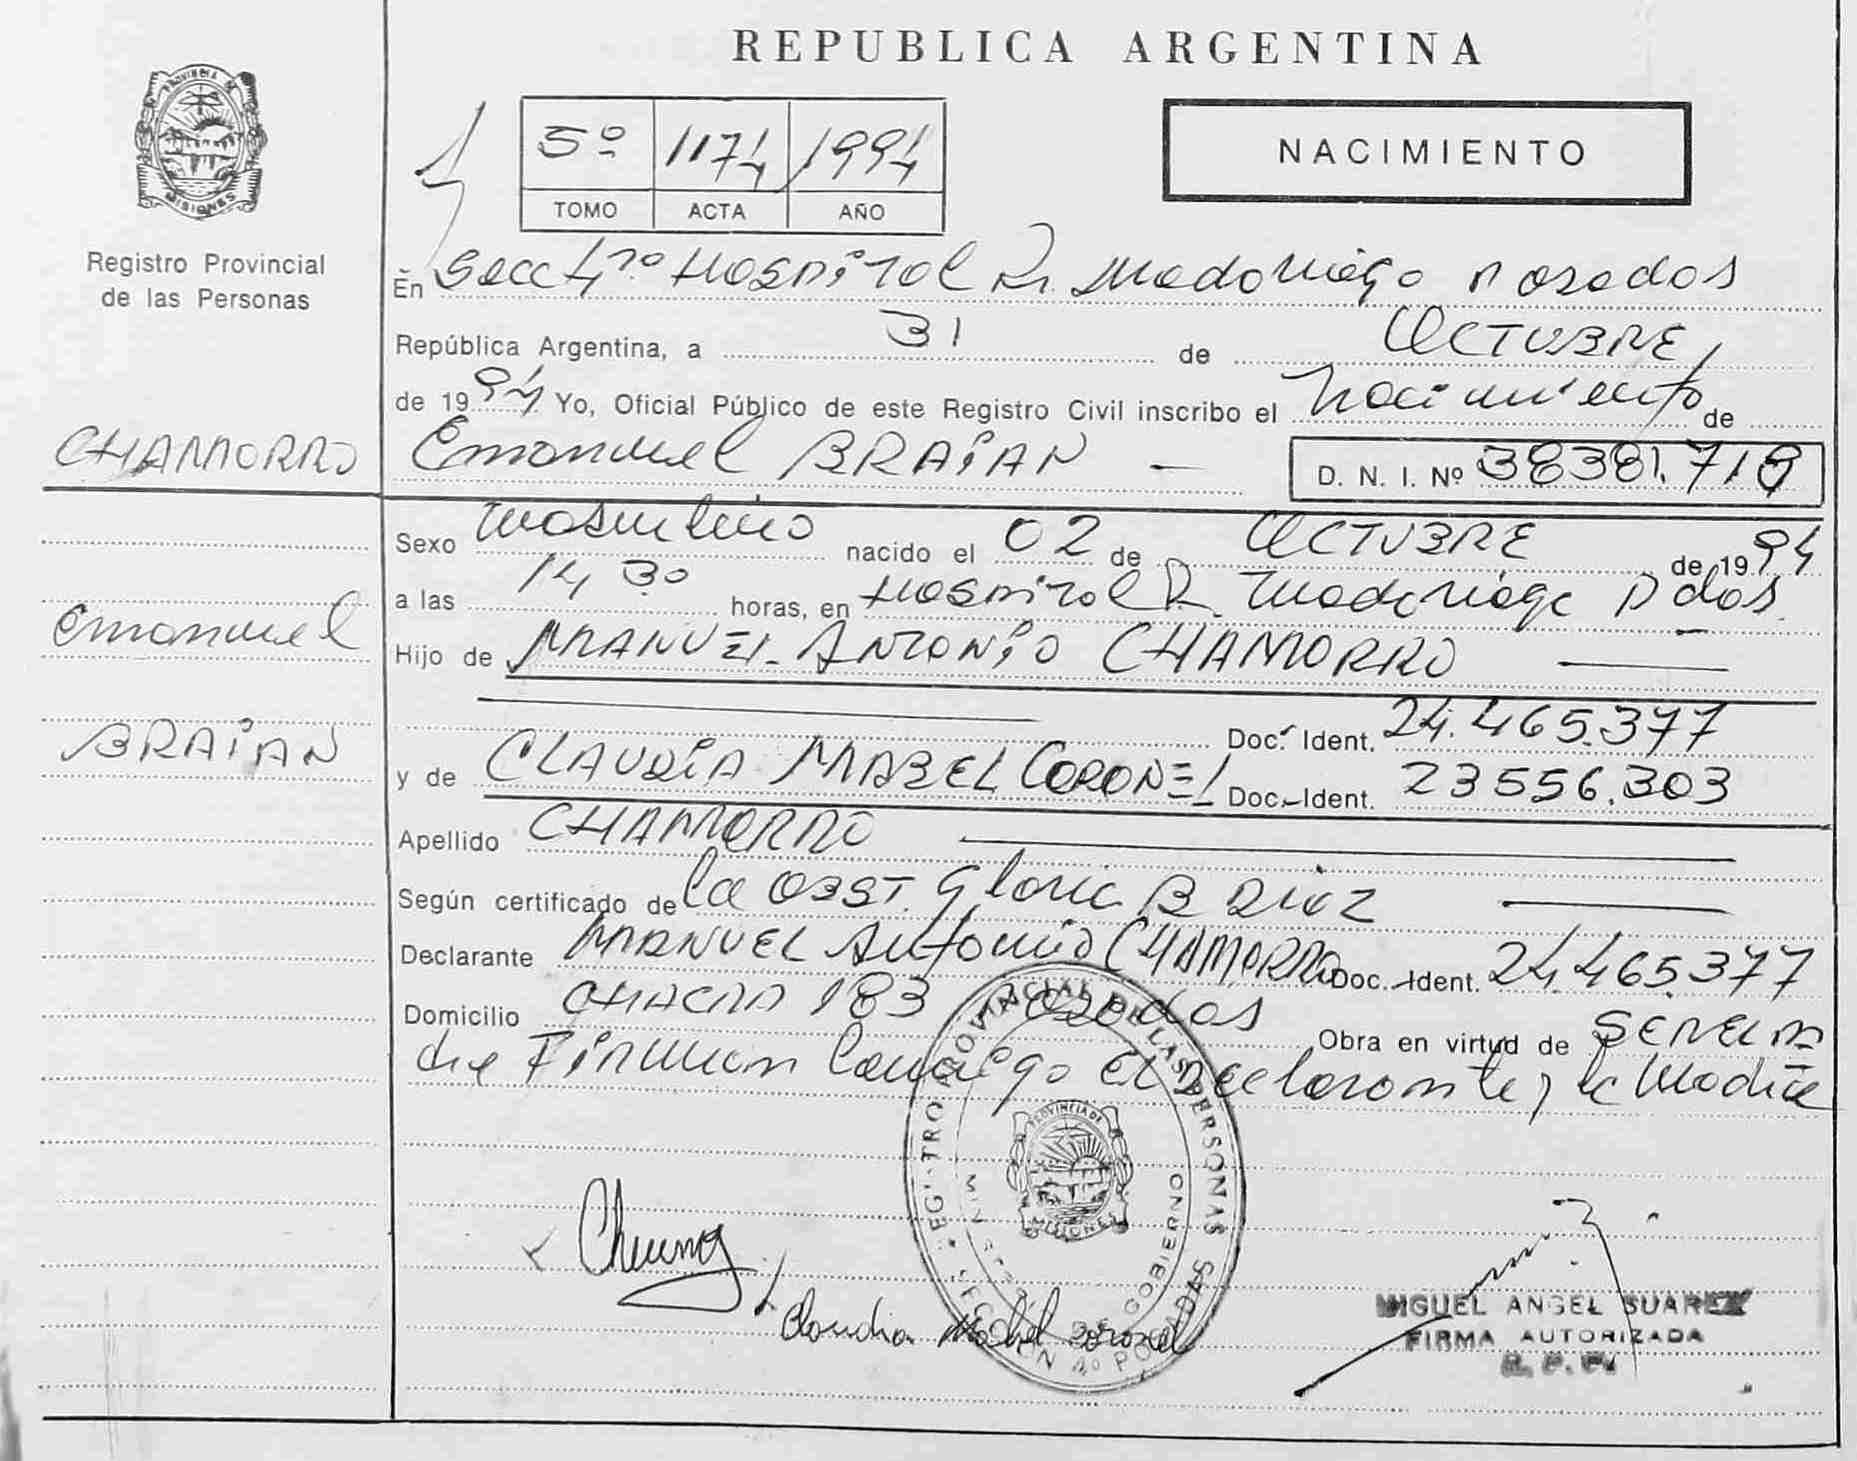 REPUBLICA ARGENTINA
PROVINCIA DE
MISIONES
Registro Provincial
de las Personas
5º 1174 1994
TOMO ACTA AÑO
NACIMIENTO
En Secc 4º Hospital R. Madariaga Posadas
República Argentina, a 31 de OCTUBRE
de 1994 Yo, Oficial Público de este Registro Civil inscribo el Nacimiento de
CHAMORRO
Emanuel BRAIAN —
D. N. I. Nº 38381.718
Sexo Masculino nacido el 02 de OCTUBRE de 1994
a las 14 30 horas, en Hospital R. Madariaga Pdas.
Emanuel
Hijo de MANUEL ANTONIO CHAMORRO
Doc. Ident. 24.465.377
BRAIAN
y de CLAUDIA MABEL CORONEL Doc. Ident. 23556.303
Apellido CHAMORRO
Según certificado de la OBST. Gloria B Diaz
Declarante MANUEL Antonio CHAMORRO Doc. Ident. 24.465.377
Domicilio CHACRA 183 Posadas Obra en virtud de
Firman Conmigo el Declarante y la Madre
REGISTRO PROVINCIAL DE LAS PERSONAS
SECCION 4º POSADAS
MINISTERIO DE GOBIERNO
PROVINCIA DE
MISIONES
Claudia Mabel Coronel
MIGUEL ANGEL SUAREZ
FIRMA AUTORIZADA
R. P. P.